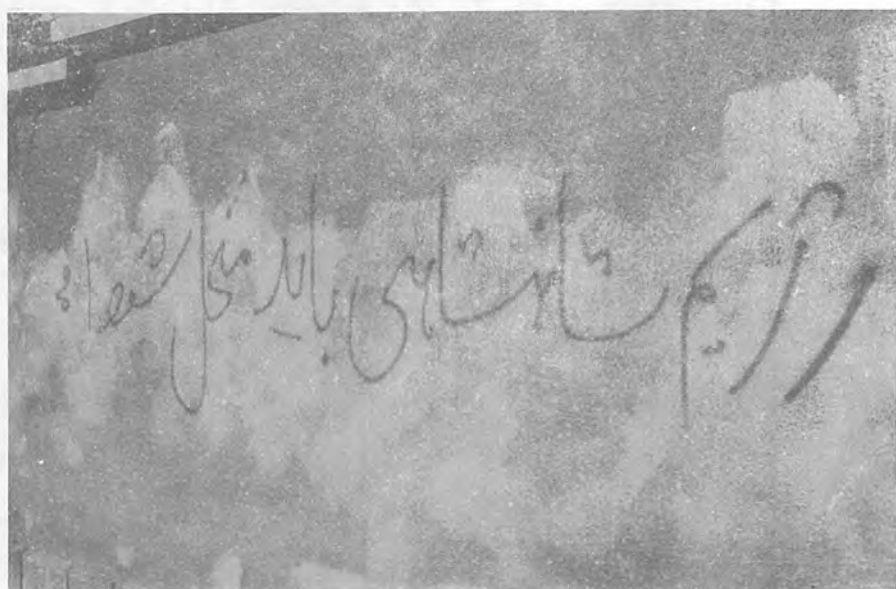 رژیم شاهنشاهی باید منحل شود